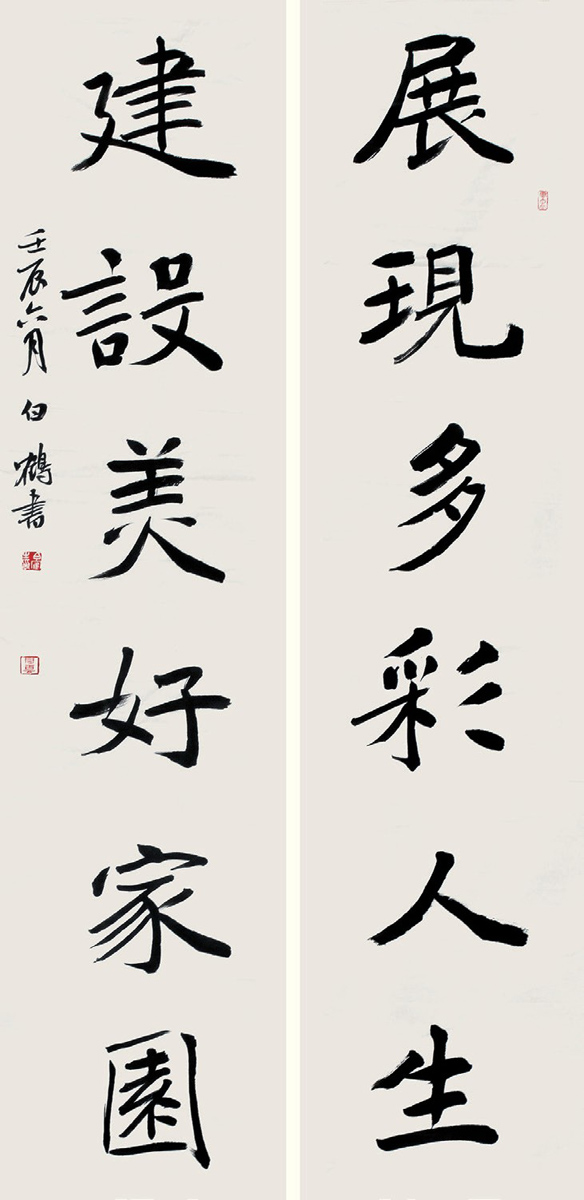 展現多彩人生
建設美好家園
壬辰六月白鶴書